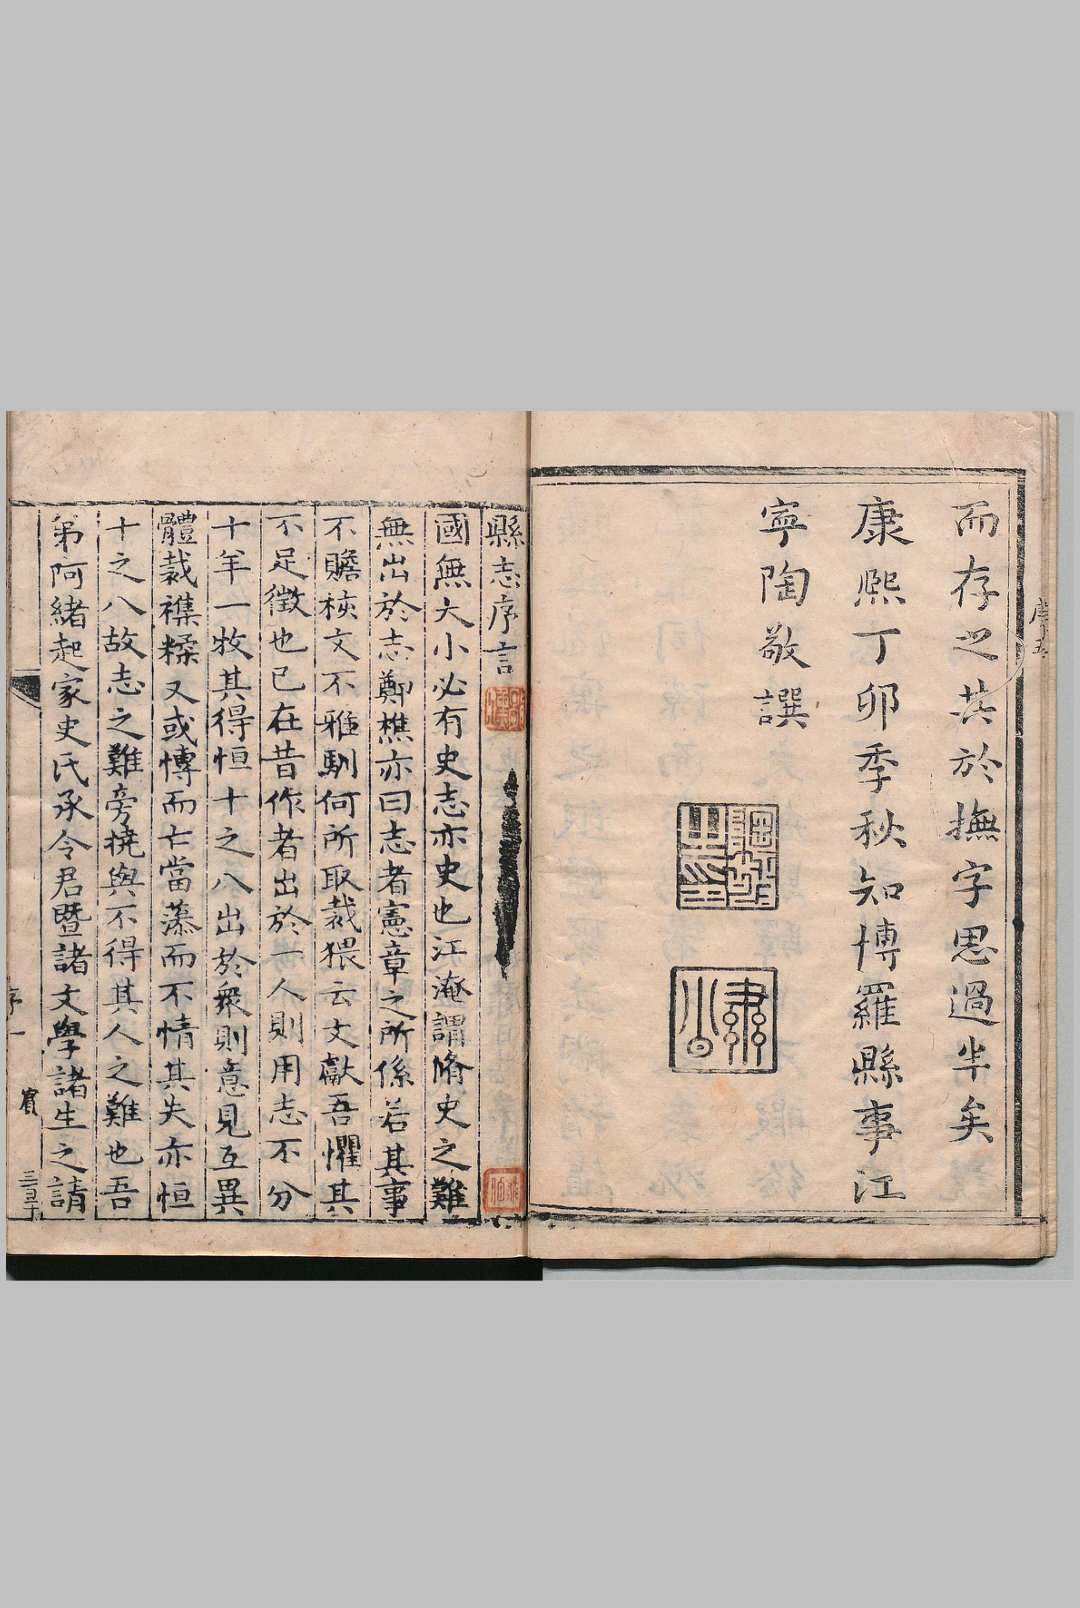 而存之其於撫字思過半矣
康熙丁卯季秋知博羅縣事江
寧陶敬譔
縣志序言
國無大小必有史志亦史也江淹謂脩史之難
無出於志鄭樵亦曰志者憲章之所係若其事
不贍核文不雅馴何所取裁猥云文獻吾懼其
不足徵也已在昔作者出於一人則用志不分
十年一攷其得恒十之八出於衆則意見互異
體裁襍糅又或慱而亡當藻而不情其失亦恒
十之八故志之難旁撓與不得其人之難也吾
弟阿緒起家史氏承令君暨諸文學諸生之請
序一